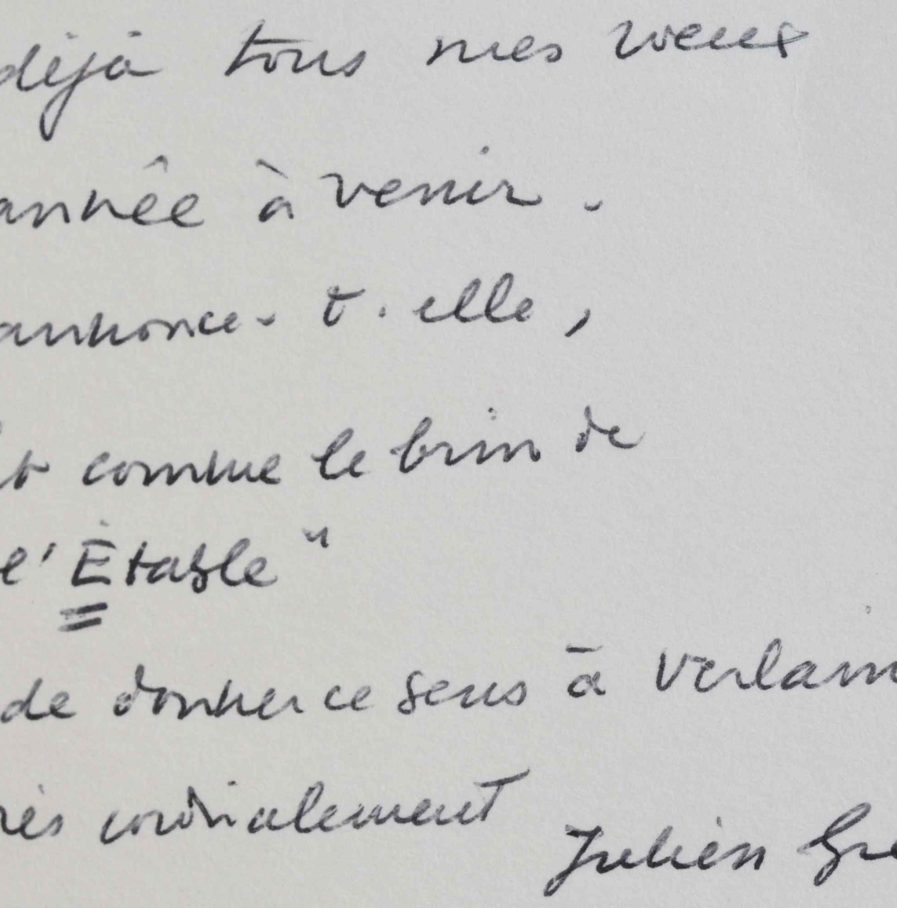 déjà tous mes voeux
année à venir.
annonce-t-elle,
comme le brin de
l'Étable"
de donner ce sens à Verlain
rès cordialement
Julien Gre